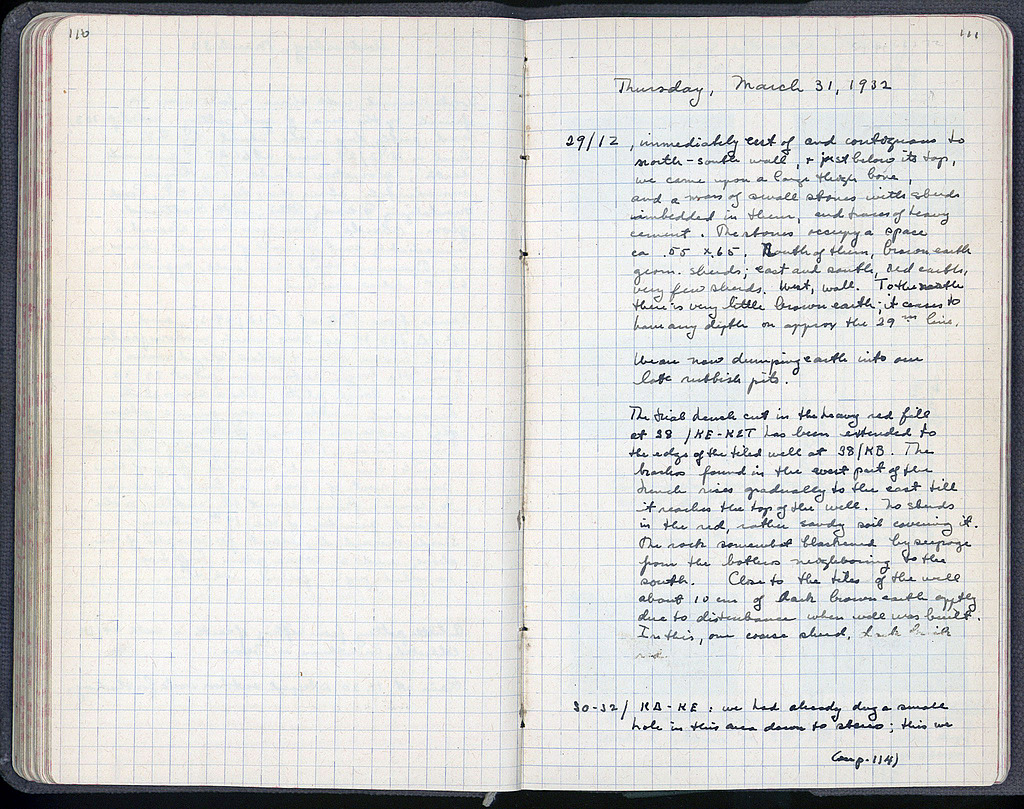 110
111
Thursday, March 31, 1932
29/12, immediately east of and contiguous to
north-south wall, + just below its top,
we came upon a large thigh bone,
and a mass of small stones with sherds
imbedded in them, and traces of heavy
cement. The stones occupy a space
ca .55 x .65. South of them, brown earth
geom. sherds; east and south, red earth,
very few sherds. West, wall. To the north
there is very little brown earth; it ceases to
have any depth on approx the 29 line.
We are now dumping earth into our
late rubbish pits.
The trial trench cut in the heavy red fill
at 38 /KE-KST has been extended to
the edge of the tiled well at 38/KB. The
found in the west part of the
trench rises gradually to the east till
it reaches the top of the well. No sherds
in the red, rather sandy soil covering it.
The rock somewhat blackened by seepage
from the bothros neighboring to the
south. Close to the tiles of the well
about 10 cm of dark brown earth
due to disturbance when well was built.
In this, one coarse sherd, dark brick
red.
30-32/ KA-KE: we had already dug a small
hole in this area down to stereo; this we
(on p. 114)